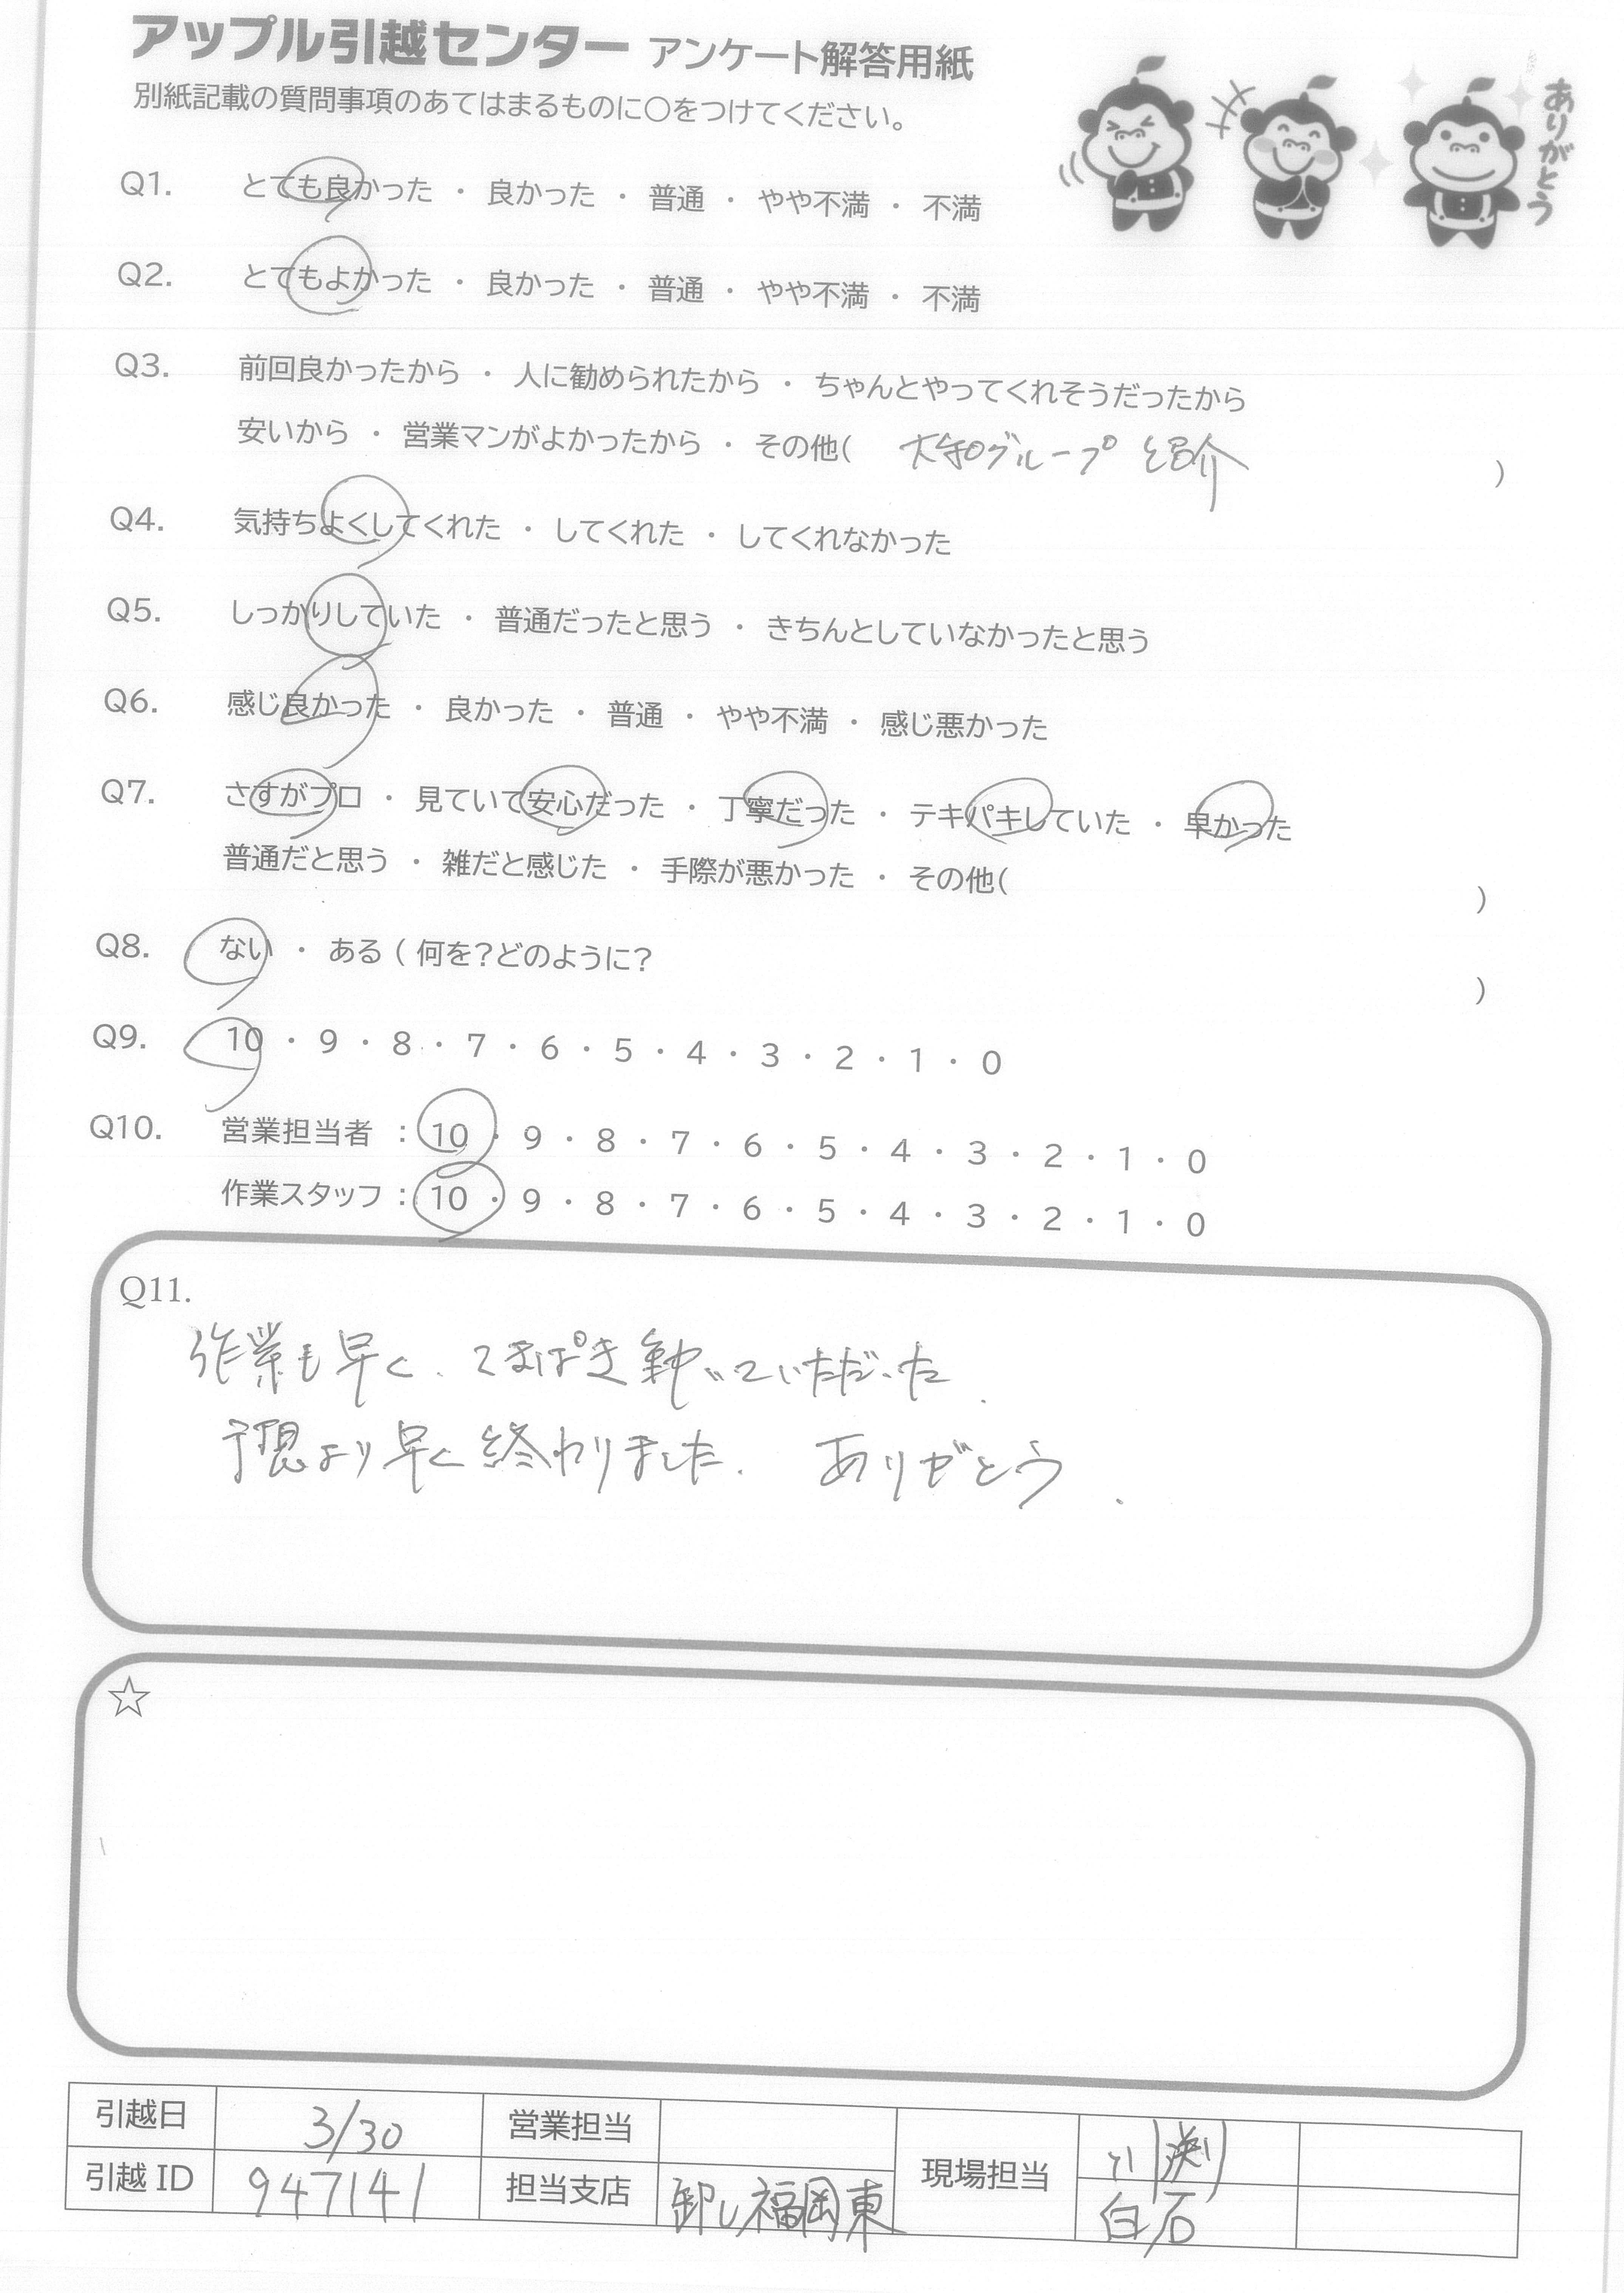 アップル引越センター アンケート解答用紙
別紙記載の質問事項のあてはまるものに〇をつけてください。
ありがとう
Q1. とても良かった ・ 良かった ・ 普通 ・ やや不満 ・ 不満
Q2. とてもよかった ・ 良かった ・ 普通 ・ やや不満 ・ 不満
Q3. 前回良かったから ・ 人に勧められたから ・ ちゃんとやってくれそうだったから
安いから ・ 営業マンがよかったから ・ その他( 大和グループ 紹介 )
Q4. 気持ちよくしてくれた ・ してくれた ・ してくれなかった
Q5. しっかりしていた ・ 普通だったと思う ・ きちんとしていなかったと思う
Q6. 感じ良かった ・ 良かった ・ 普通 ・ やや不満 ・ 感じ悪かった
Q7. さすがプロ ・ 見ていて安心だった ・ 丁寧だった ・ テキパキしていた ・ 早かった
普通だと思う ・ 雑だと感じた ・ 手際が悪かった ・ その他( )
Q8. ない ・ ある ( 何を?どのように? )
Q9. 10 ・ 9 ・ 8 ・ 7 ・ 6 ・ 5 ・ 4 ・ 3 ・ 2 ・ 1 ・ 0
Q10. 営業担当者 : 10 ・ 9 ・ 8 ・ 7 ・ 6 ・ 5 ・ 4 ・ 3 ・ 2 ・ 1 ・ 0
作業スタッフ : 10 ・ 9 ・ 8 ・ 7 ・ 6 ・ 5 ・ 4 ・ 3 ・ 2 ・ 1 ・ 0
Q11.
作業も早く、てきぱき動いていただいた.
予想より早く終わりました. ありがとう.
☆
引越日 3/30 営業担当 現場担当 川渕
引越 ID 947141 担当支店 卸し福岡東 白石